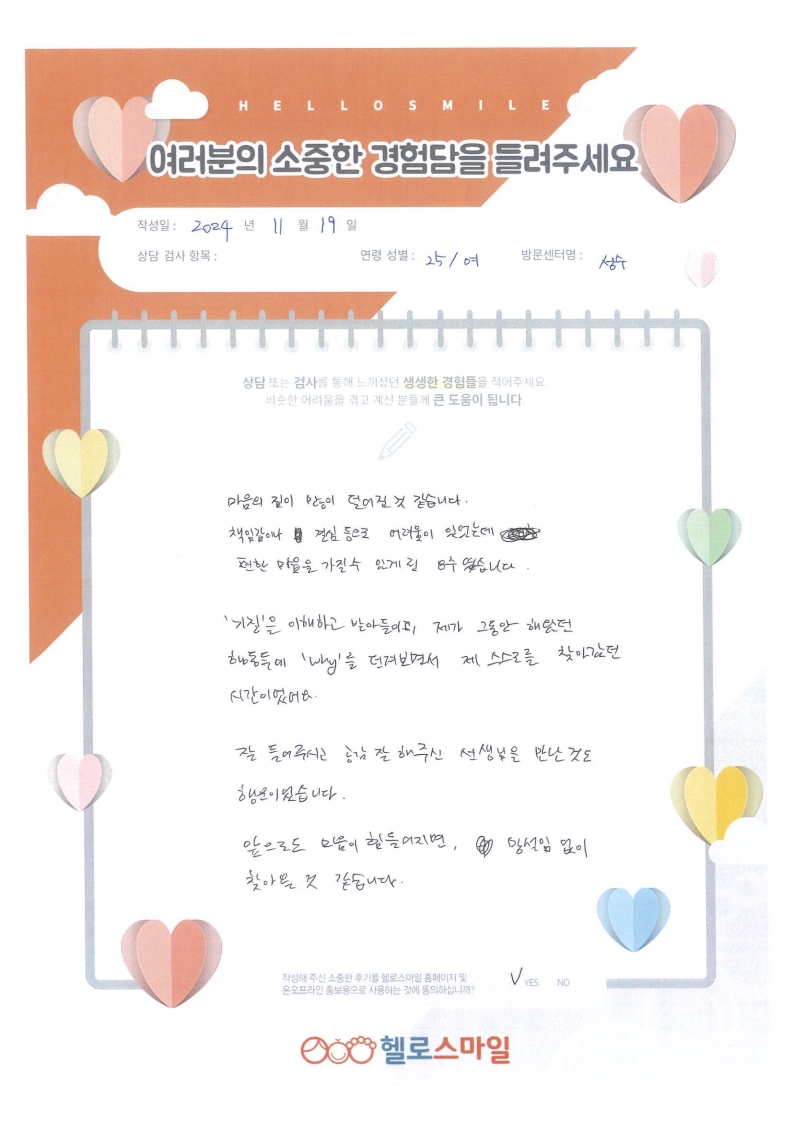 HELLOSMILE
여러분의 소중한 경험담을 들려주세요
작성일 : 2024 년 11 월 19 일
상담 검사 항목 : 연령 성별 : 25 / 여 방문센터명 : 성수
상담 또는 검사를 통해 느끼셨던 생생한 경험들을 적어주세요.
비슷한 어려움을 겪고 계신 분들께 큰 도움이 됩니다.
마음의 짐이 많이 덜어진 것 같습니다.
책임감이나 결심 등으로 어려움이 있었는데
편한 마음을 가질 수 있게 된 8주 였습니다.
'기질'을 이해하고 받아들이고, 제가 그동안 해왔던
행동들에 'why'를 던져보면서 제 스스로를 찾아갔던
시간이었어요.
잘 들어주시고 공감 잘 해주신 선생님을 만난 것도
행운이었습니다.
앞으로도 마음이 힘들어지면, 망설임 없이
찾아올 것 같습니다.
작성해 주신 소중한 후기를 헬로스마일 홈페이지 및
온오프라인 홍보용으로 사용하는 것에 동의하십니까? V YES NO
헬로스마일